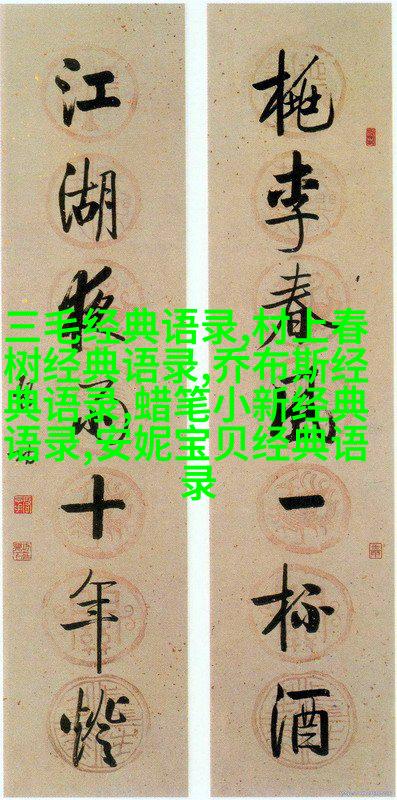 桃李春風一杯酒
江湖夜雨十年燈
三毛经典语录,村上春
树经典语录,乔布斯经
典语录,蜡笔小新经典
语录,安妮宝贝经典语
录